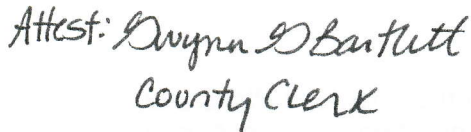 Attest: Gwynn G Bartlett
County Clerk